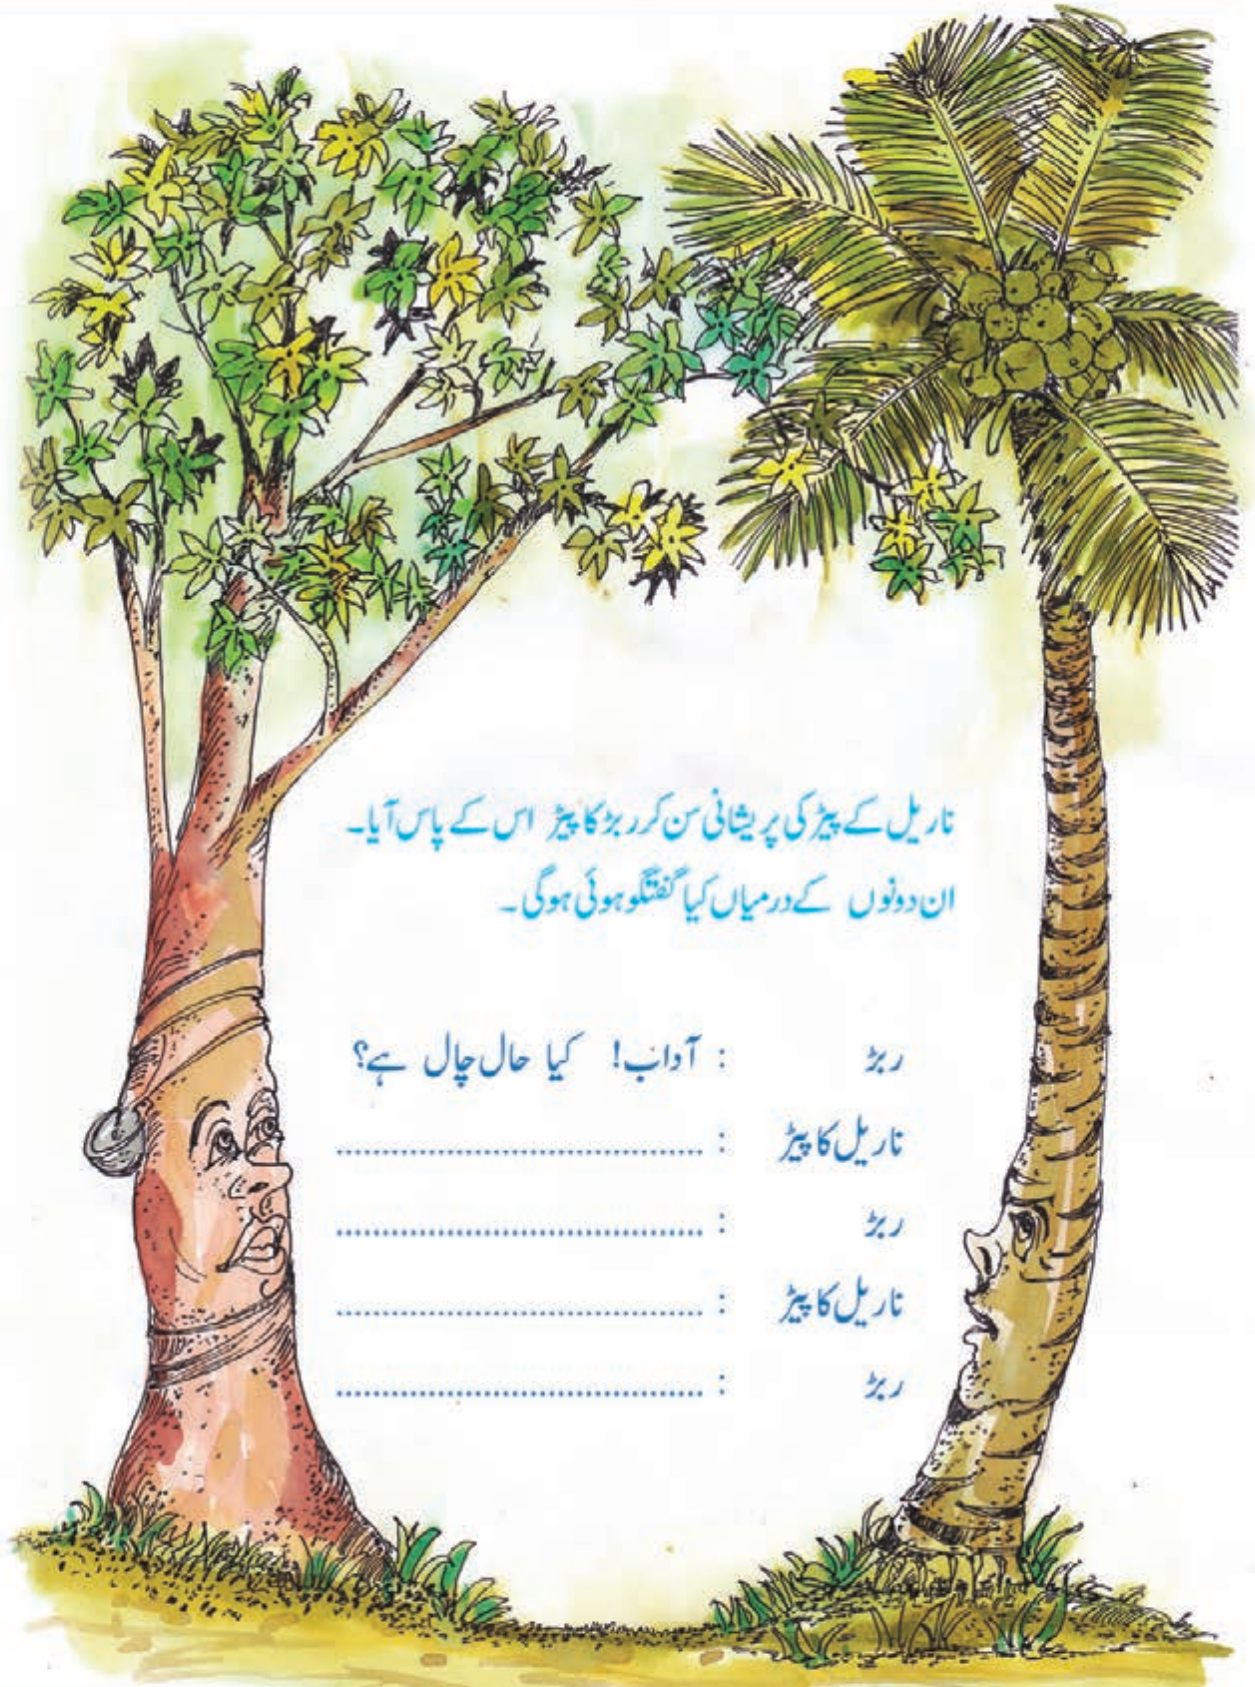 ناریل کے پیڑ کی پریشانی سن کر ربڑ کا پیڑ اس کے پاس آیا۔
ان دونوں کے درمیاں کیا گفتگو ہوئی ہوگی۔
ربڑ : آداب! کیا حال چال ہے؟
ناریل کا پیڑ : ........................................
ربڑ : ........................................
ناریل کا پیڑ : ........................................
ربڑ : ........................................